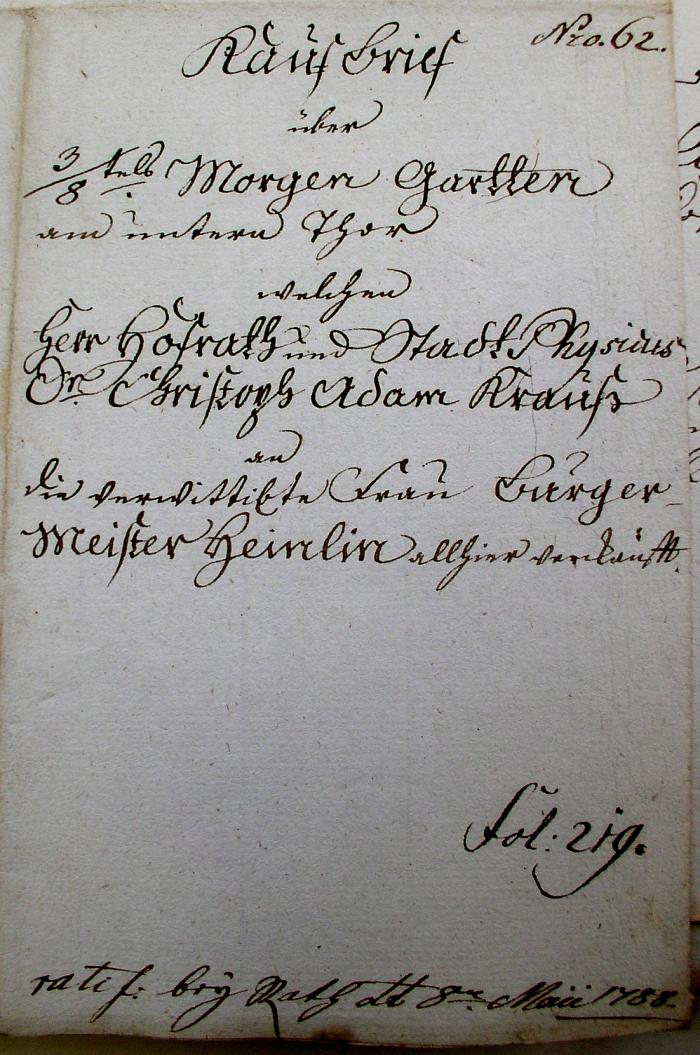 Nro. 62.
Kauf Brief
über
3/8 tels Morgen Gartten
am untern Thor
welchen
Herr Hofrath und Stadt Physicus
Dr. Christoph Adam Krauß
an
die verwittibte Frau Burger-
Meister Heinlin allhier verkaufft.
Fol: 219.
ratif: bey Rath dt 8ten Maii 1788.